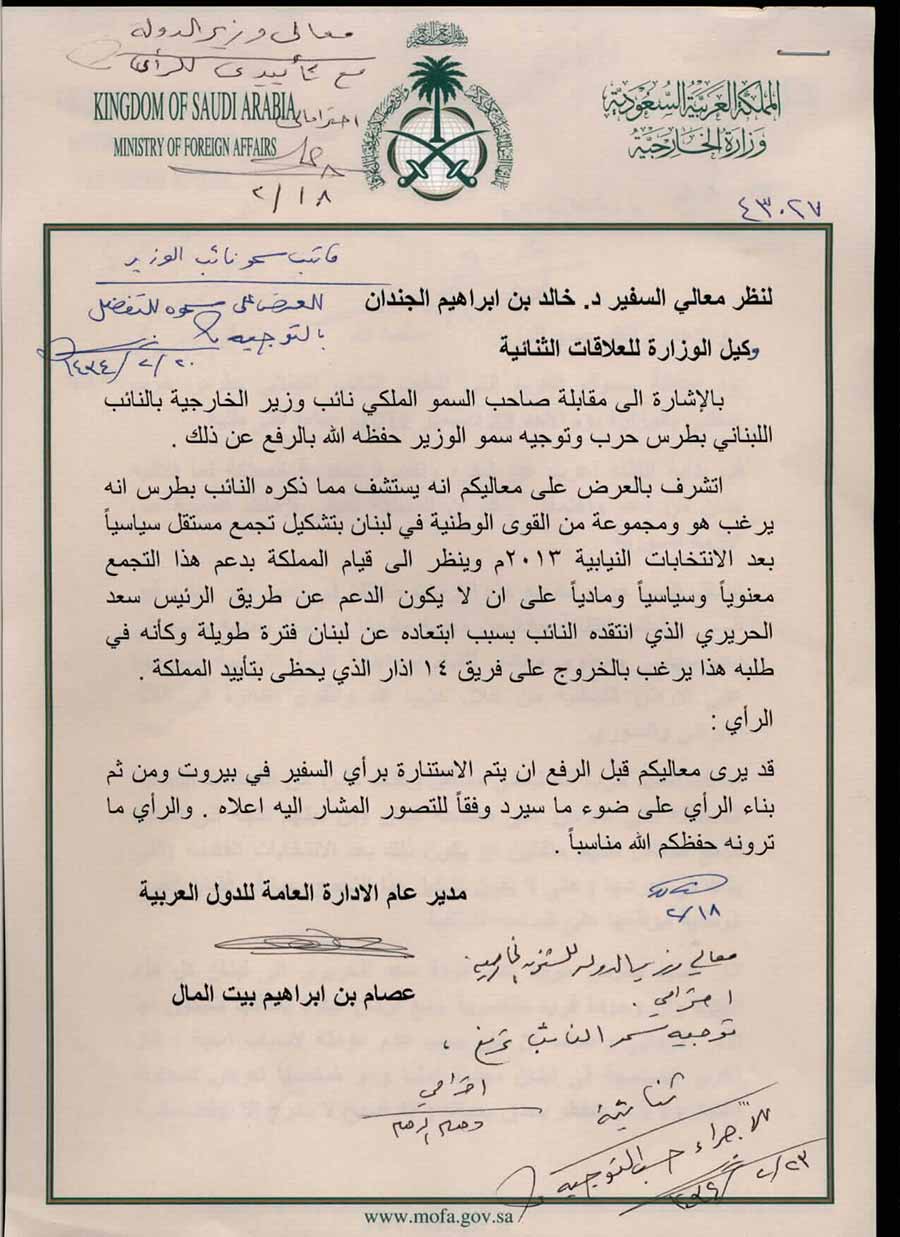 معالي وزير الدولة
مع تأييدي للرأي
احترامي
٢/١٨
KINGDOM OF SAUDI ARABIA
MINISTRY OF FOREIGN AFFAIRS
المملكة العربية السعودية
وزارة الخارجية
٤٣٠٢٧
مكتب سمو نائب الوزير
للعرض على سموه للتفضل
بالتوجيه
١٤٣٤/٢/٢٠
لنظر معالي السفير د. خالد بن ابراهيم الجندان
وكيل الوزارة للعلاقات الثنائية
بالإشارة الى مقابلة صاحب السمو الملكي نائب وزير الخارجية بالنائب
اللبناني بطرس حرب وتوجيه سمو الوزير حفظه الله بالرفع عن ذلك .
اتشرف بالعرض على معاليكم انه يستشف مما ذكره النائب بطرس انه
يرغب هو ومجموعة من القوى الوطنية في لبنان بتشكيل تجمع مستقل سياسياً
بعد الانتخابات النيابية ٢٠١٣م وينظر الى قيام المملكة بدعم هذا التجمع
معنوياً وسياسياً ومادياً على ان لا يكون الدعم عن طريق الرئيس سعد
الحريري الذي انتقده النائب بسبب ابتعاده عن لبنان فترة طويلة وكأنه في
طلبه هذا يرغب بالخروج على فريق ١٤ اذار الذي يحظى بتأييد المملكة .
الرأي :
قد يرى معاليكم قبل الرفع ان يتم الاستنارة برأي السفير في بيروت ومن ثم
بناء الرأي على ضوء ما سيرد وفقاً للتصور المشار اليه اعلاه . والرأي ما
ترونه حفظكم الله مناسباً .
مدير عام الادارة العامة للدول العربية
٢/١٨
عصام بن ابراهيم بيت المال
معالي وزير الدولة للشئون الخارجية
احترامي .
توجيه سمو النائب
احترامي
ثنائية
للاجراء حسب التوجيه
٢/٢٣
www.mofa.gov.sa